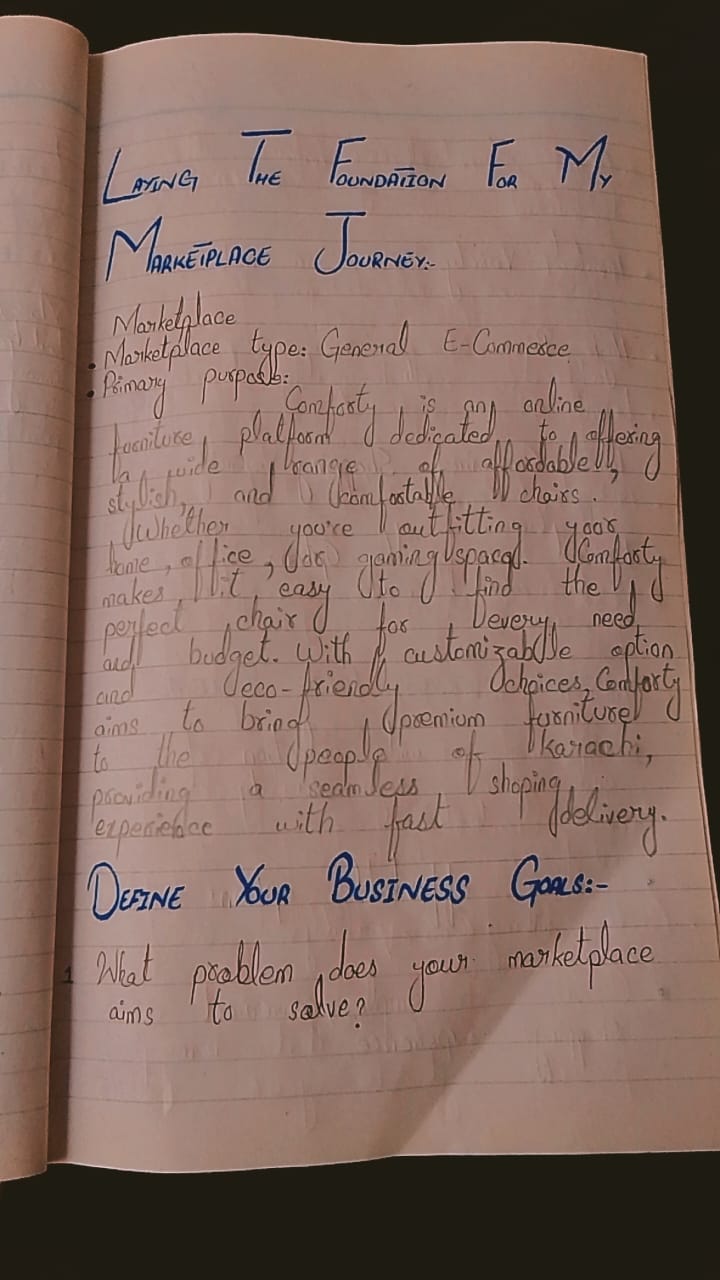 LAYING THE FOUNDATION FOR MY
MARKETPLACE JOURNEY:-
Marketplace
• Marketplace type: General E-Commerce
• Primary purpose:
Comforty is an online
furniture platform dedicated to offering
a wide range of affordable,
stylish, and comfortable chairs.
Whether you're outfitting your
home, office, or gaming space. Comforty
makes it easy to find the
perfect chair for every need
and budget. With customizable option
and eco-friendly choices, Comforty
aims to bring premium furniture
to the people of karachi,
providing a seamless shoping
experience with fast delivery.
DEFINE YOUR BUSINESS GOALS:-
1 What problem does your marketplace
aims to solve?